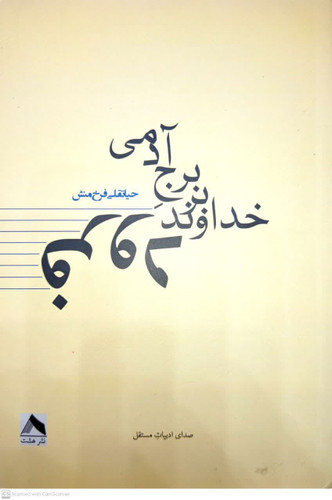 آدمی
برج
حیاتقلی فرخ‌منش
خداوند
فرود
صدای ادبیاتِ مستقل
نشر هشت
Scanned with CamScanner
CS